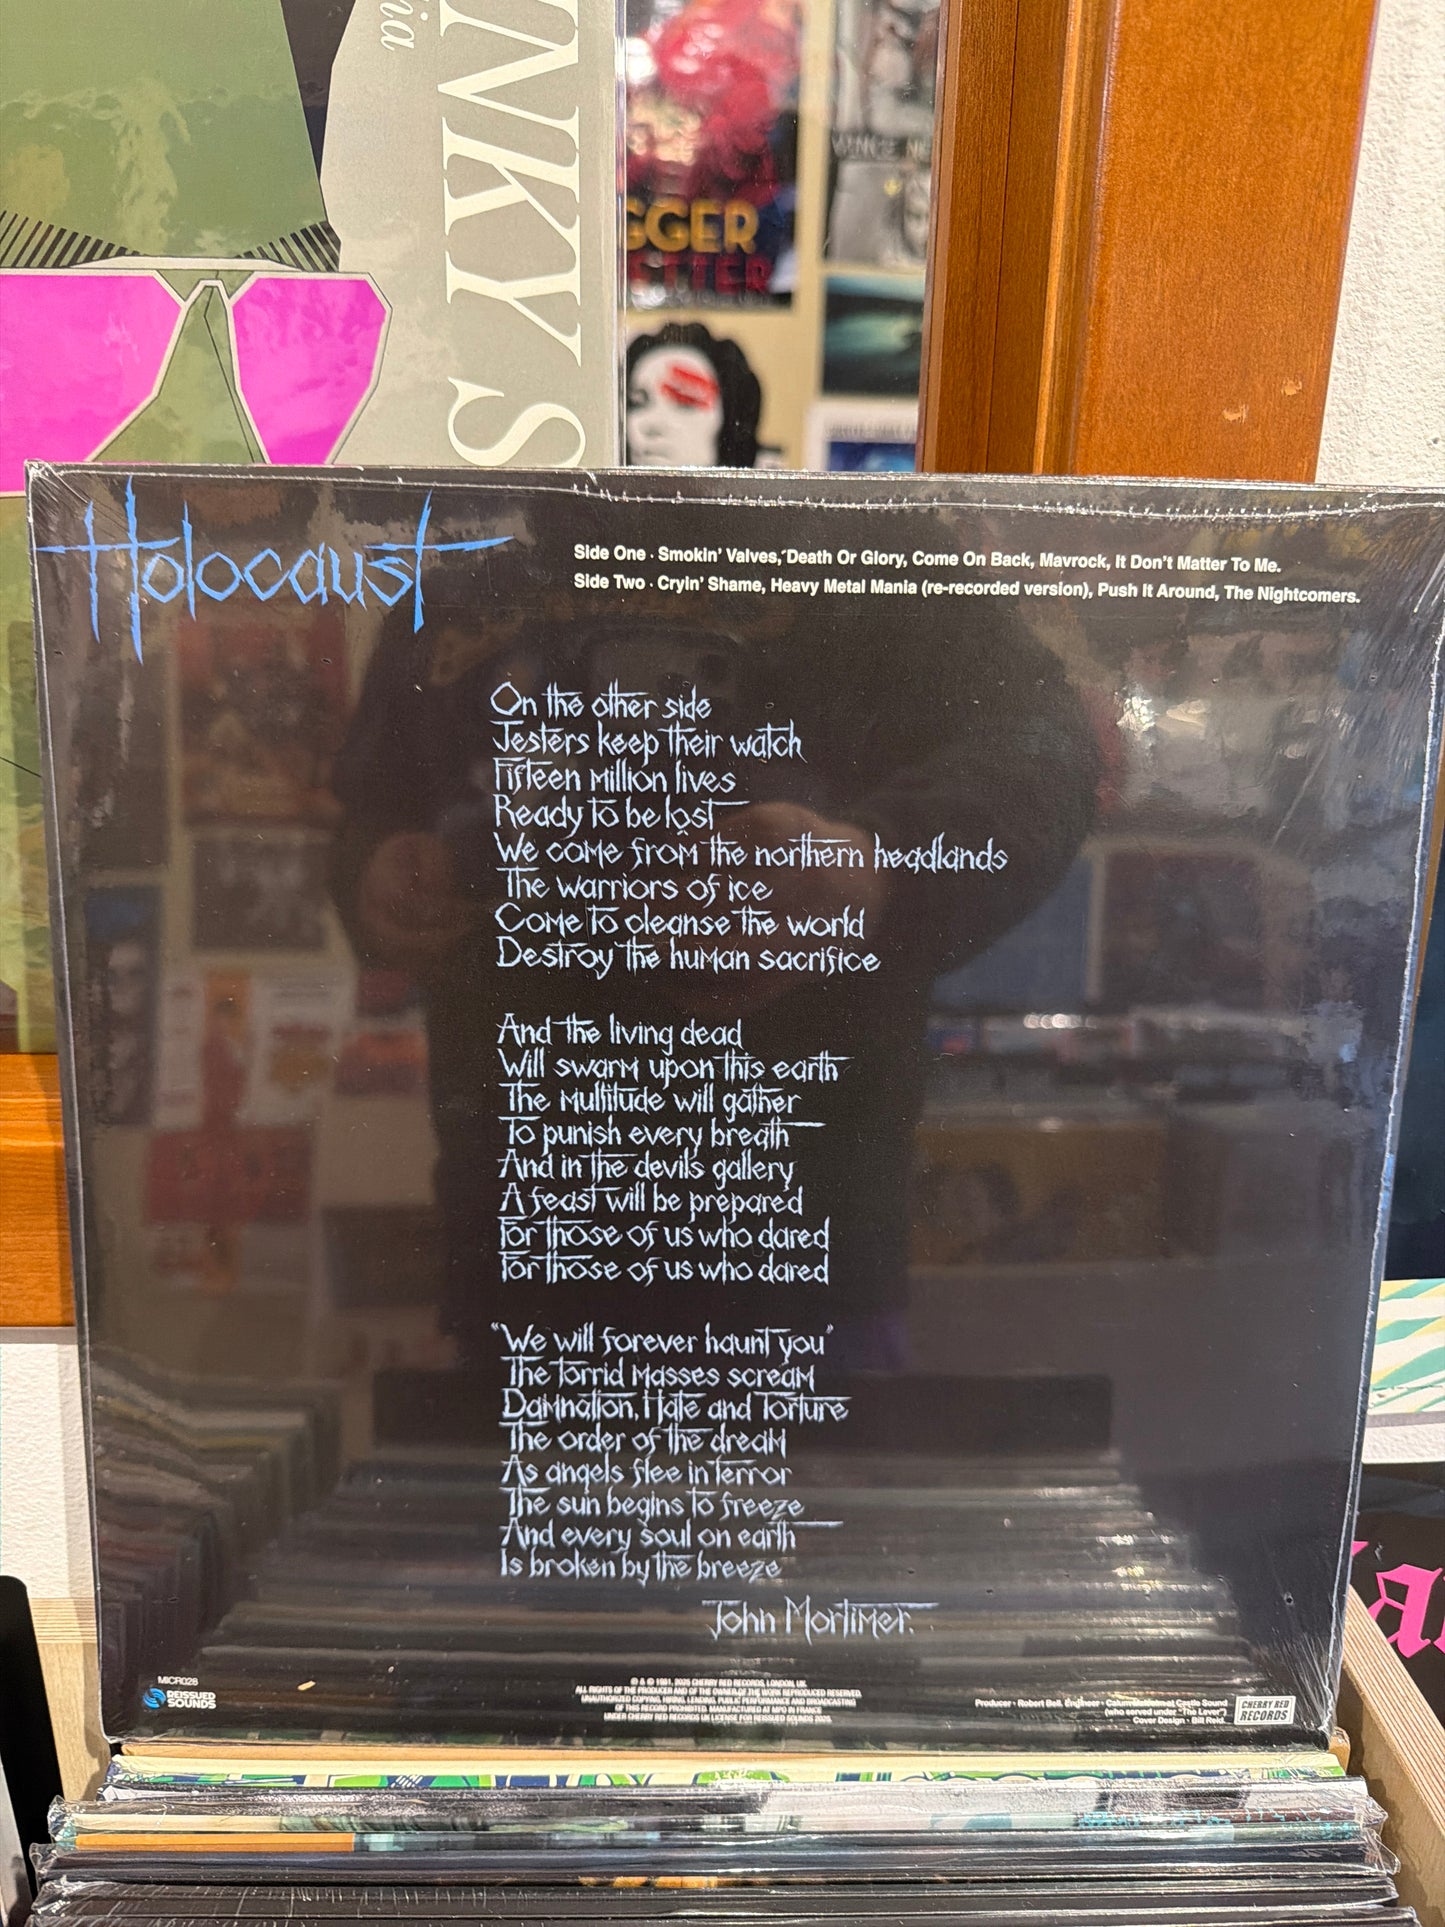 NKY S
GGER
ETTER
VINCE NE
Holocaust
Side One · Smokin' Valves, Death Or Glory, Come On Back, Mavrock, It Don't Matter To Me.
Side Two · Cryin' Shame, Heavy Metal Mania (re-recorded version), Push It Around, The Nightcomers.
On the other side
Jesters keep their watch
Fifteen million lives
Ready to be lost
We come from the northern headlands
The warriors of ice
Come to cleanse the world
Destroy the human sacrifice
And the living dead
Will swarm upon this earth
The multitude will gather
To punish every breath
And in the devils gallery
A feast will be prepared
For those of us who dared
For those of us who dared
"We will forever haunt you"
The torrid masses scream
Damnation, Hate and Torture
The order of the dream
As angels flee in terror
The sun begins to freeze
And every soul on earth
Is broken by the breeze
John Mortimer.
MICR028
REISSUED
SOUNDS
℗ & © 1981, 2025 CHERRY RED RECORDS, LONDON, UK.
ALL RIGHTS OF THE PRODUCER AND OF THE OWNER OF THE WORK REPRODUCED RESERVED.
UNAUTHORIZED COPYING, HIRING, LENDING, PUBLIC PERFORMANCE AND BROADCASTING
OF THIS RECORD PROHIBITED. MANUFACTURED AT MPO IN FRANCE
UNDER CHERRY RED RECORDS UK LICENSE FOR REISSUED SOUNDS 2025.
Producer · Robert Bell. Engineer · Calum Malcolm at Castle Sound
(who served under "The Lever")
Cover Design · Bill Reid.
CHERRY RED
RECORDS